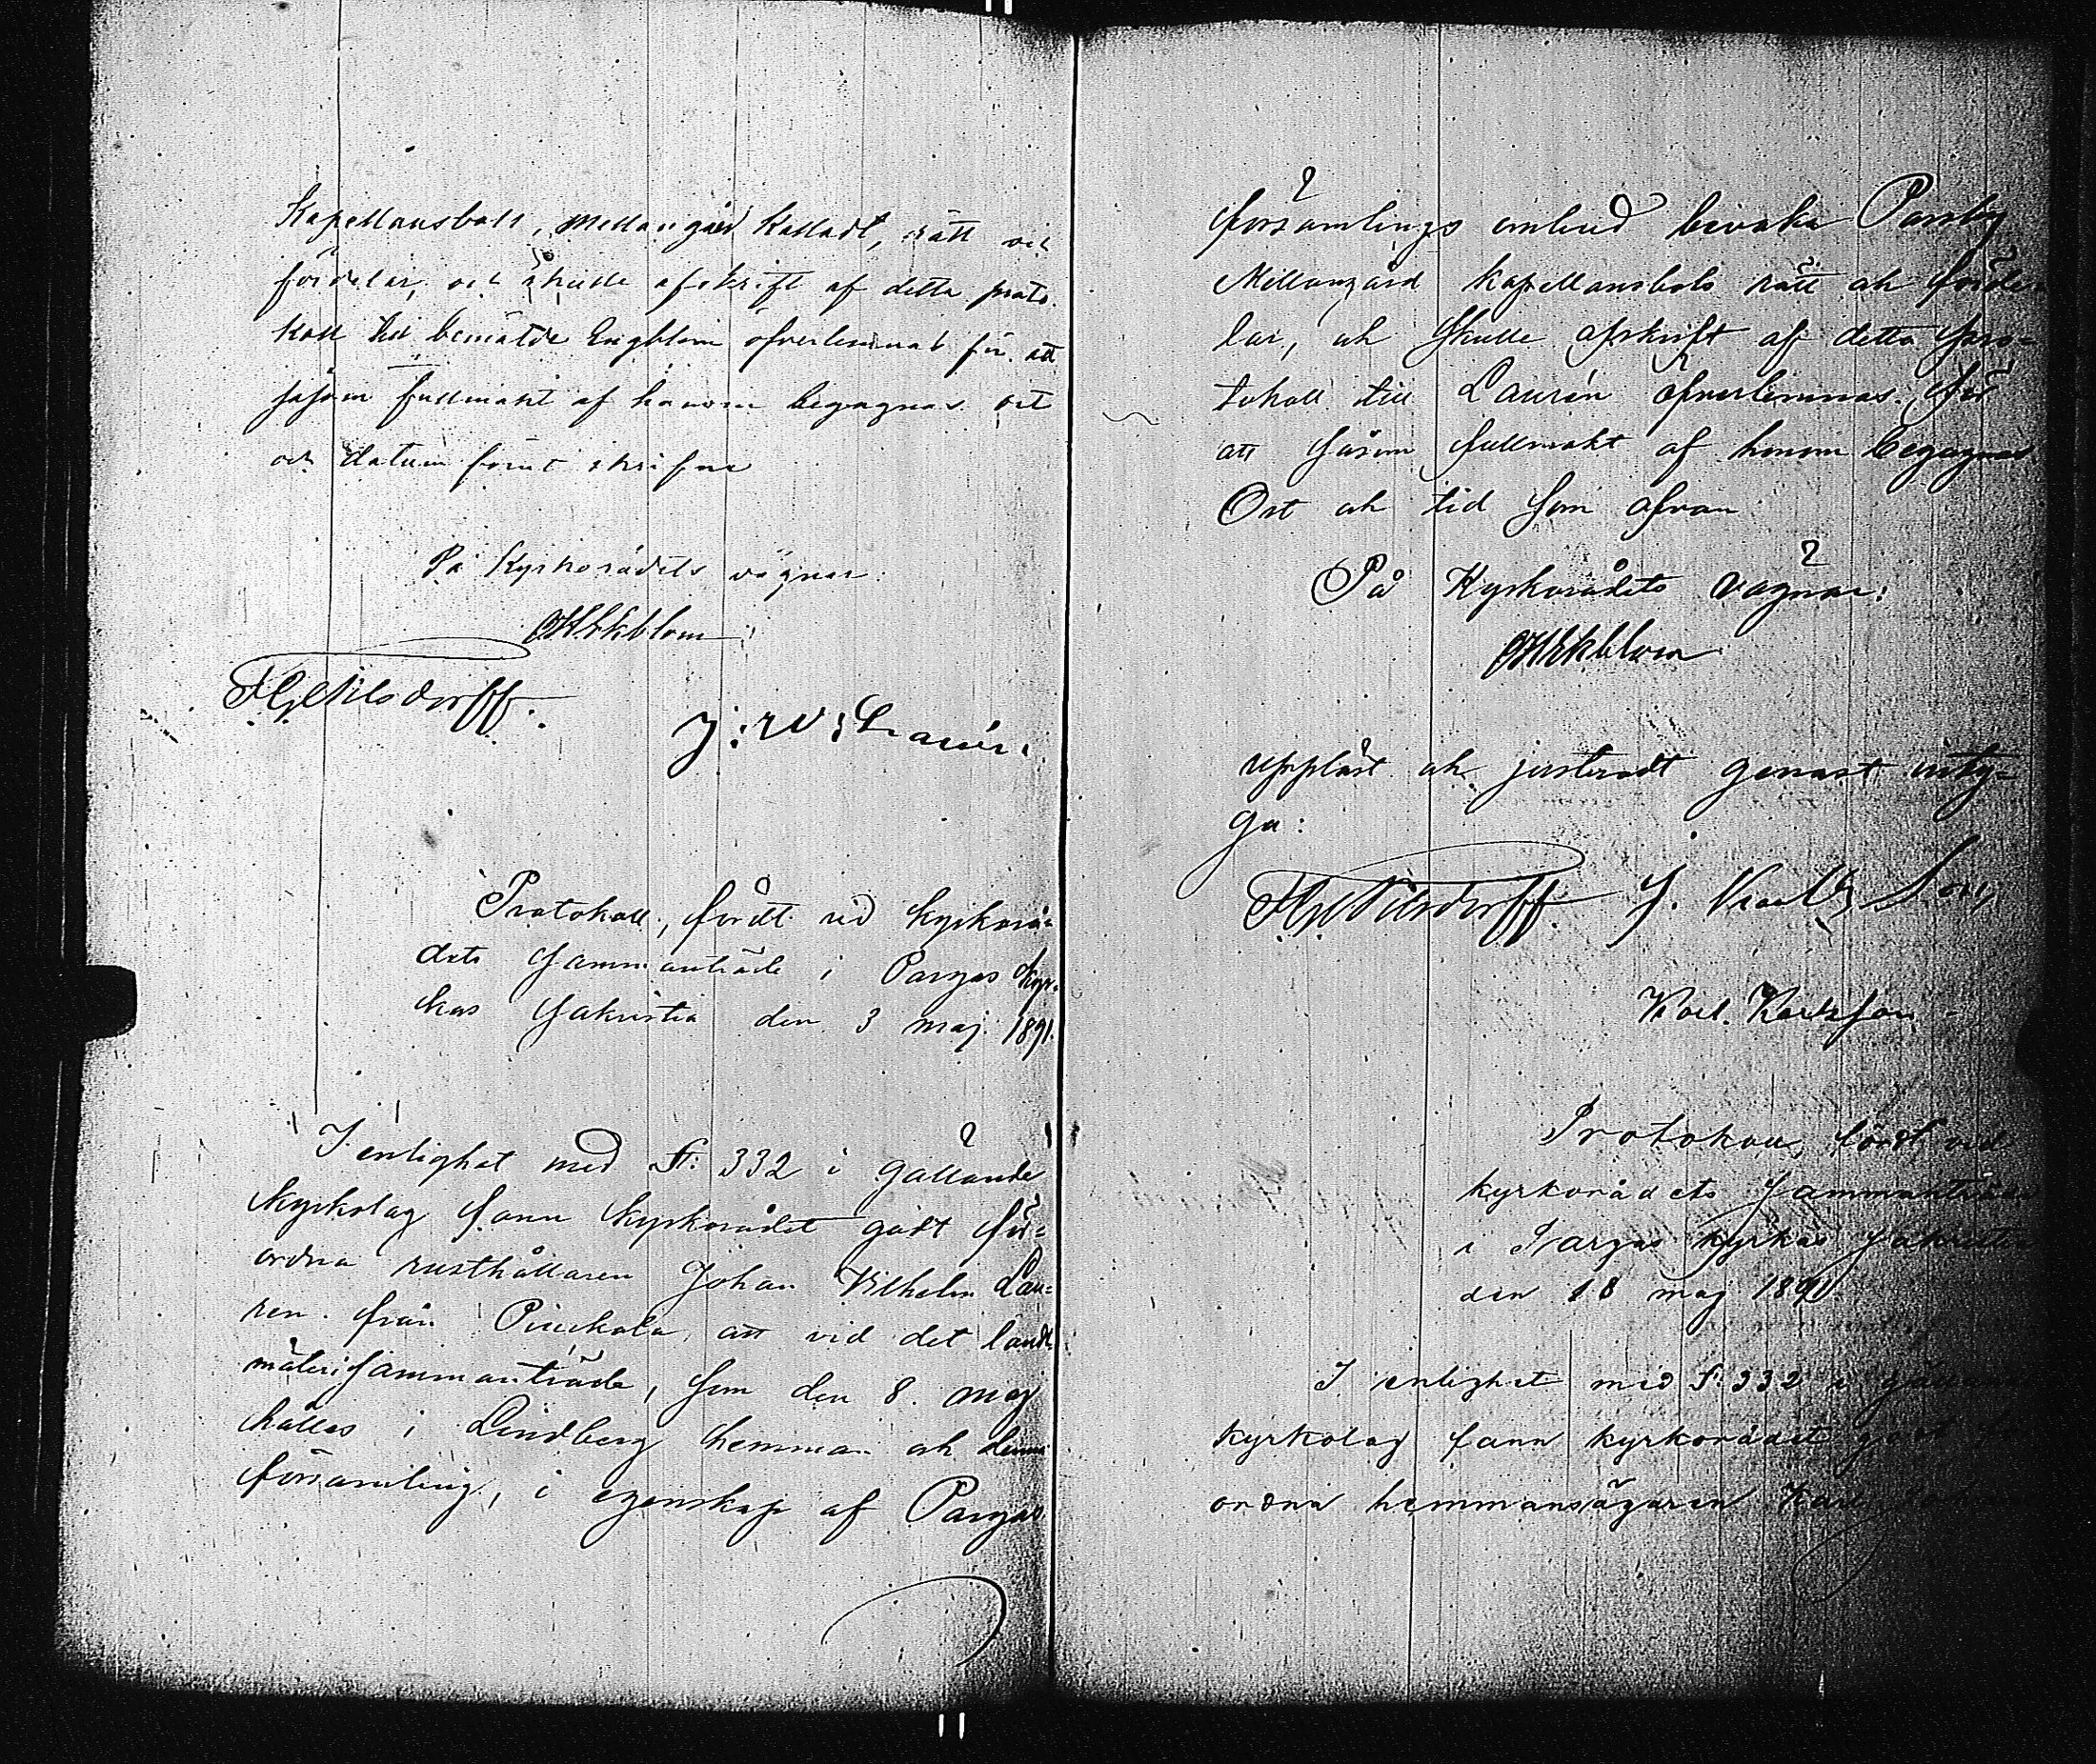 Kapellansbols, Mellangård kalladt, rätt och
fördelar, och skulle afskrift af detta proto-
koll till bemälde Engblom öfverlemnas för att
såsom fullmakt af honom begagnas. Ort
och datum förut skrifne
På Kyrkorådets vägnar:
OHEkblom
F.G.Nilsdorff.
J: W: Laurén.
Protokoll, fördt vid kyrkorå-
dets sammanträde i Pargas kyr-
kas sakristia den 3 maj 1891.
I enlighet med §: 332 i gällande
kyrkolag fann kyrkorådet godt för-
ordna rusthållaren Johan Vilhelm Lau-
ren från Pinckala, att vid det landt-
mäterisammanträde, som den 8. maj
hålles i Lindberg hemman och denna
församling, i egenskap af Pargas
församlings ombud bevaka Parsby
Mellangård kapellansbols rätt och förde-
lar, och skulle afskrift af detta pro-
tokoll till Laurén öfverlemnas för
att såsom fullmakt af honom begagnas
Ort och tid som ofvan
På Kyrkorådets vägnar:
OHEkblom
Uppläst och justeradt genast inty-
ga:
F.G.Nilsdorff. J. Karlsson,
Karl. Karlsson
Protokoll, fördt vid
kyrkorådets sammanträde
i Pargas kyrkas sakristia
den 18 maj 1891.
I enlighet med §. 332 i
kyrkolag fann kyrkorådet godt
ordna hemmansägaren Karl